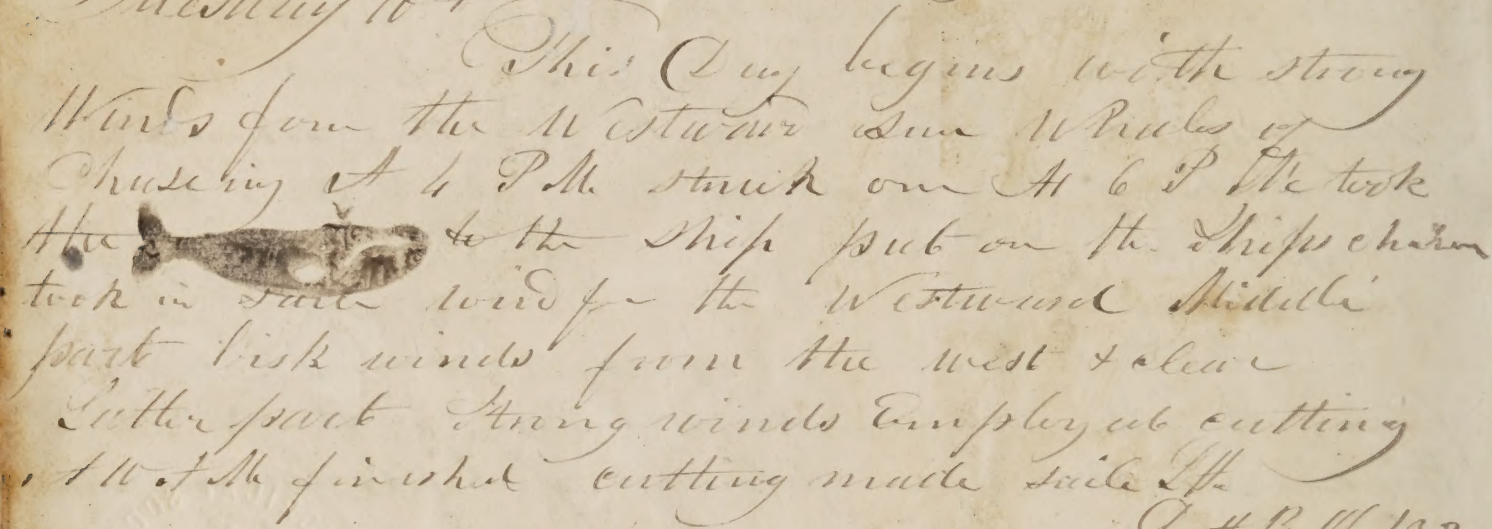 Tuesday 10th
This Day begins with strong
Winds from the Westward Saw Whales
Chaseing At 4 P M struck one At 6 P M took
the to the ship put on the Ships chain
took in saile wind fr the Westward Middle
part brisk winds from the west & clear
Latter part Strong winds Employ at cutting
At 10 A M finished cutting made saile